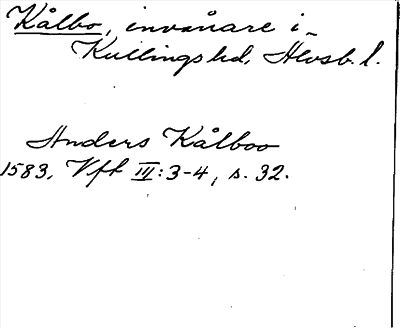 Kålbo, invånare i
Kullings hd, Älvsb. l.
Anders Kålboo
1583, Vft III: 3-4, s. 32.